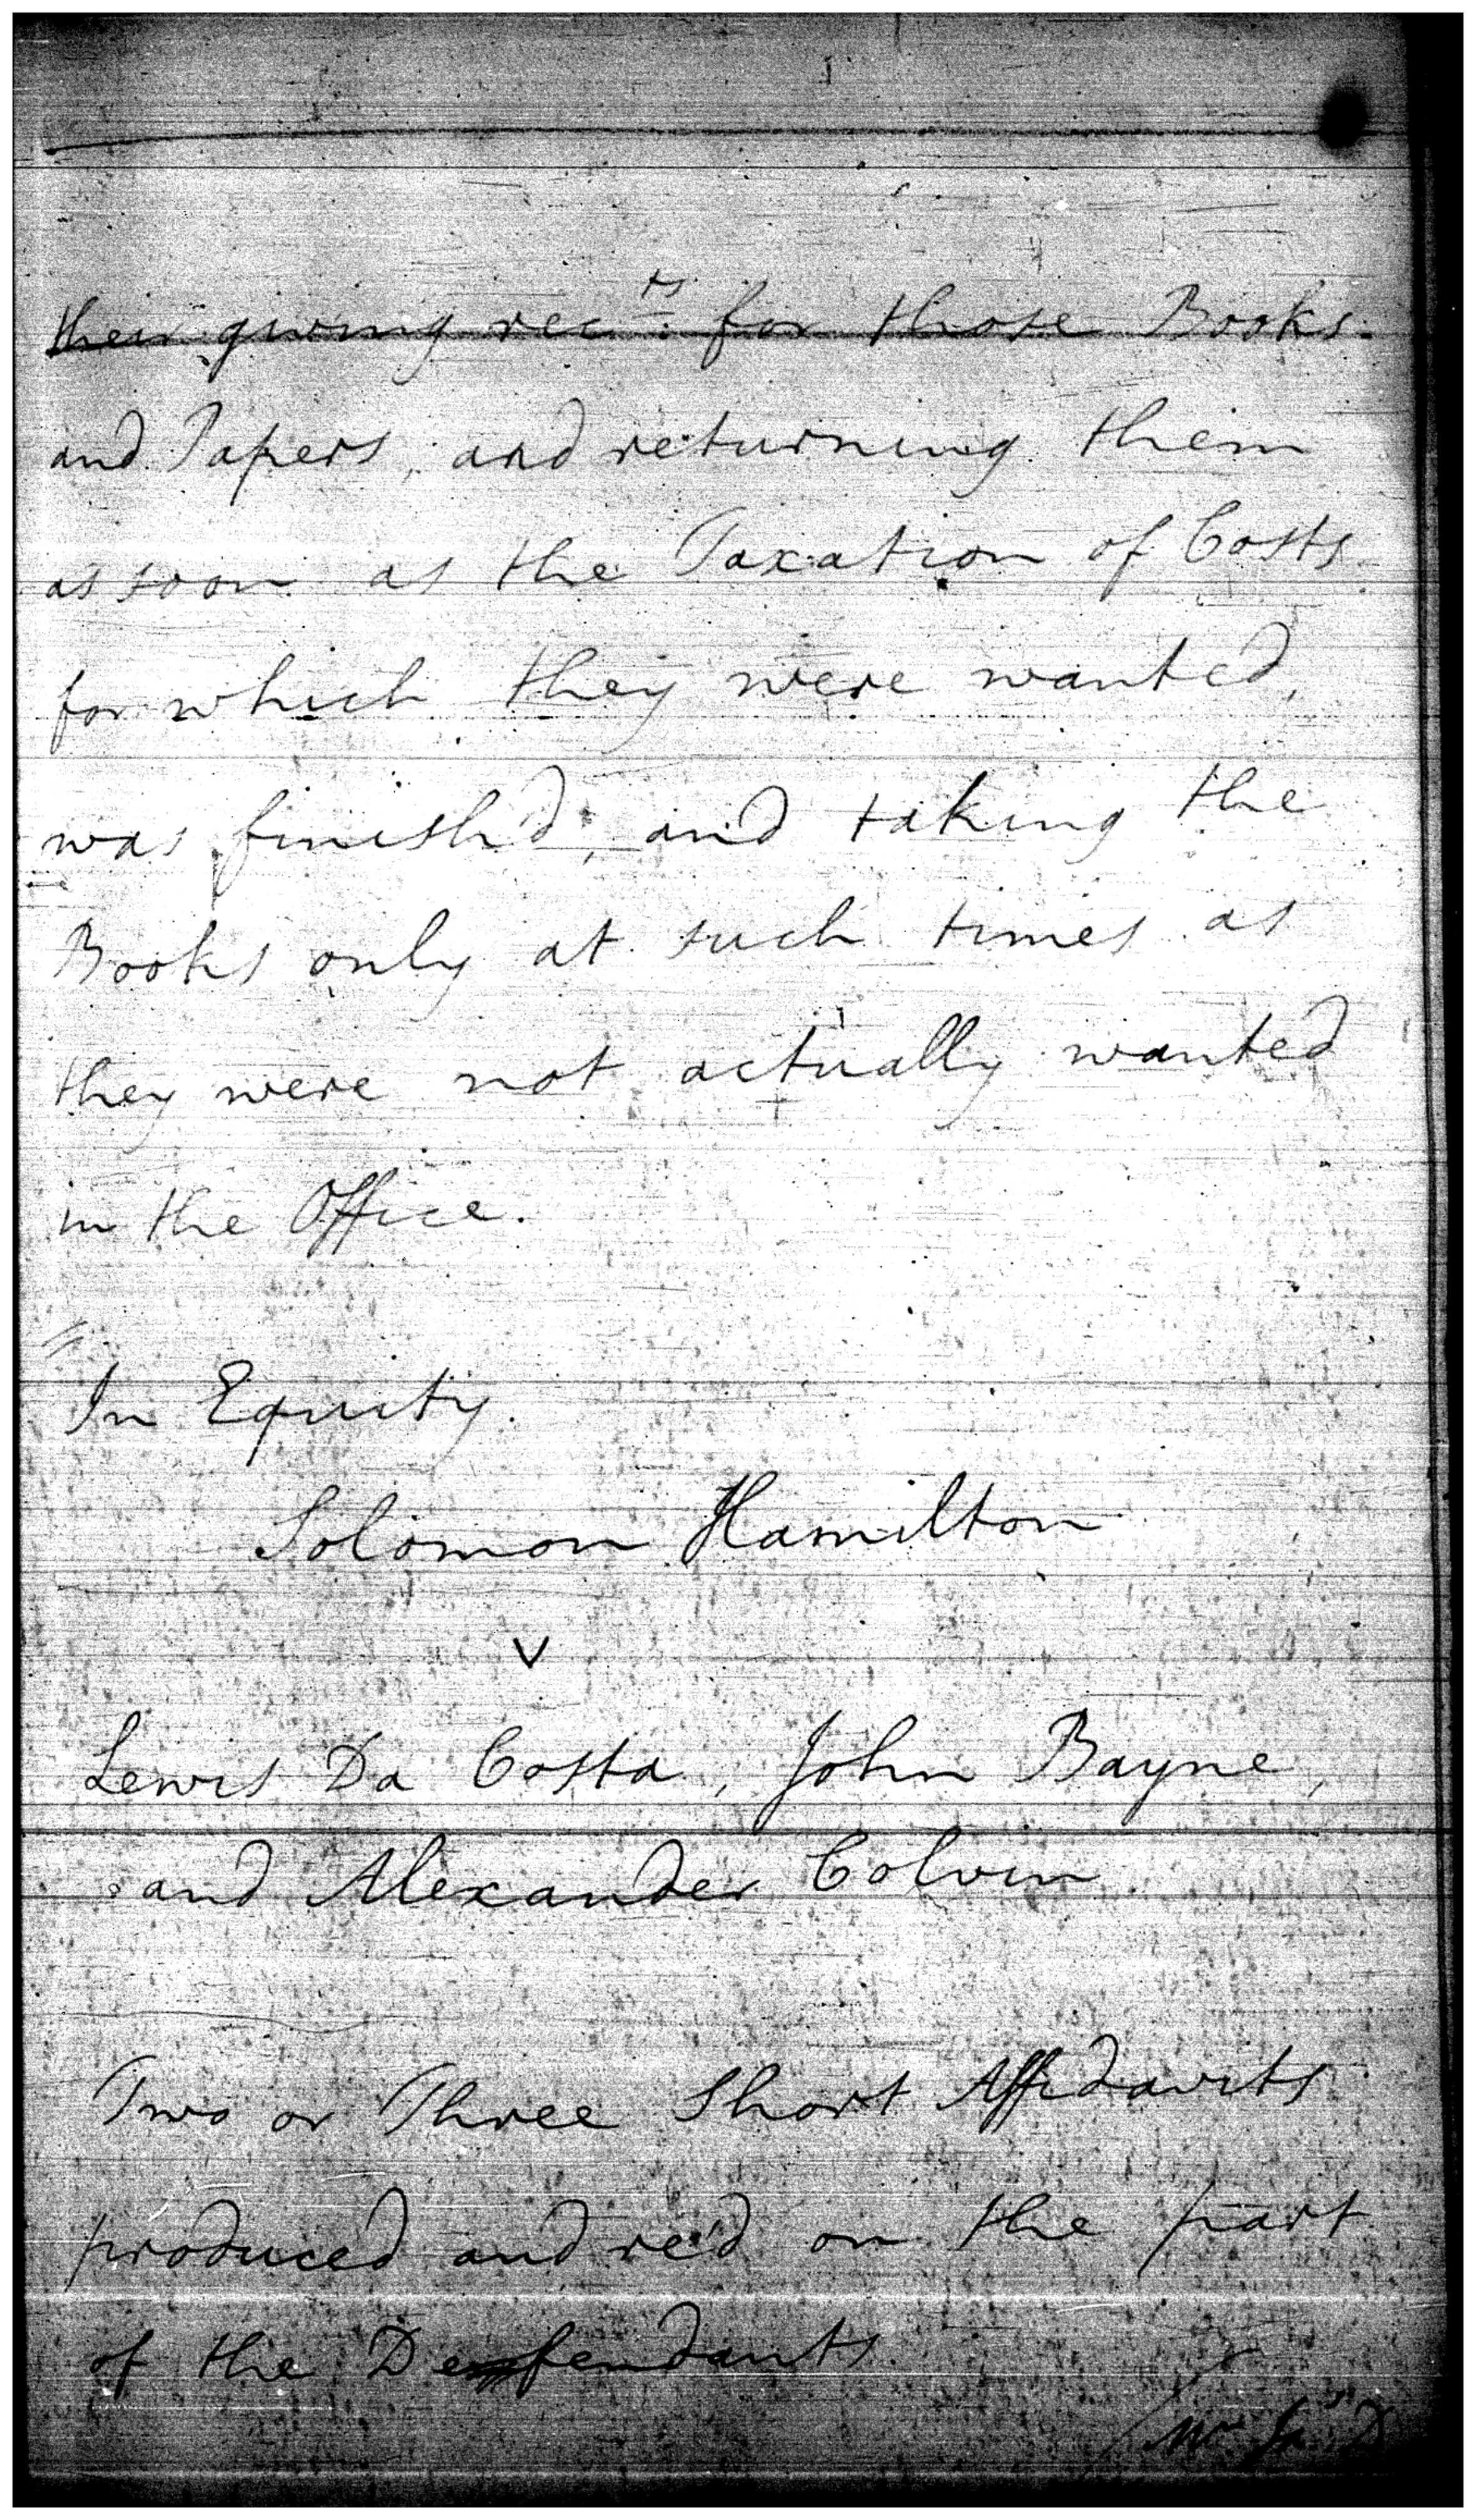 their giving rec.ts for those Books
and Papers, and returning them
as soon as the Taxation of Costs
for which they were wanted,
was finish'd, and taking the
Books only at such times as
they were not actually wanted
in the Office.
In Equity.
Solomon Hamilton
v
Lewis Da Costa, John Bayne,
and Alexander Colvin
Two or Three Short Affidavits
produced and re'd on the part
of the Defendants